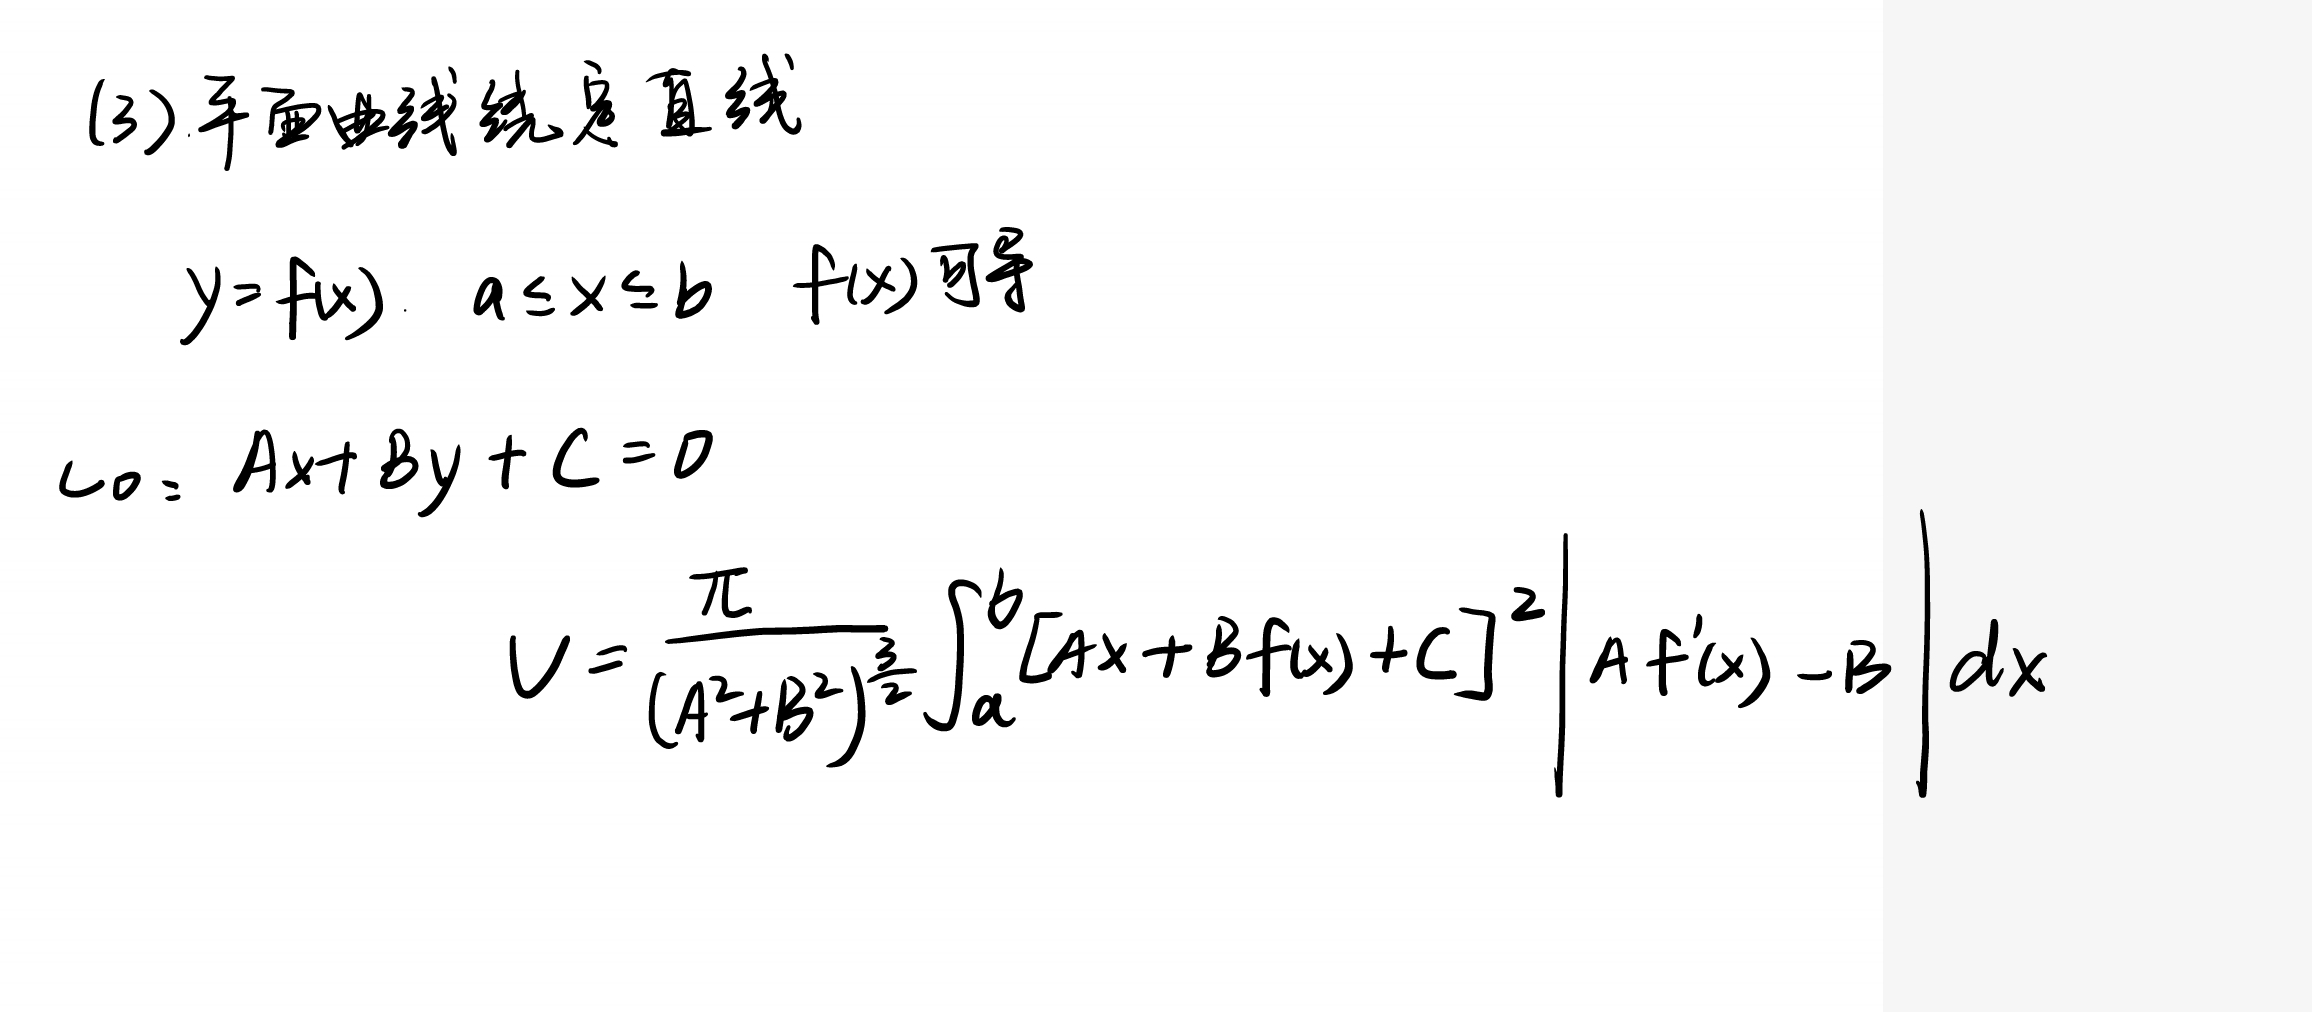 (3).平面曲线绕定直线
y=f(x). a≤x≤b f(x)可导
L0: Ax+By+C=0
V=\frac{π}{(A²+B²)^{\frac{3}{2}}}∫_a^b[Ax+Bf(x)+C]²|Af'(x)-B|dx